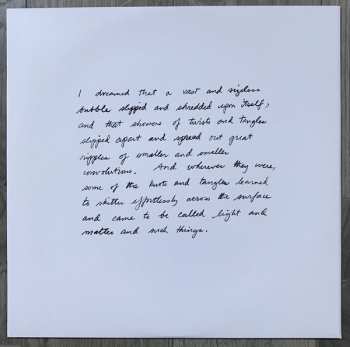 I dreamed that a vast and sizeless
bubble slipped and shredded upon itself,
and that showers of twists and tangles
slipped apart and spread out great
ripples of smaller and smaller
convolutions. And wherever they were,
some of the knots and tangles learned
to skitter effortlessly across the surface
and came to be called light and
matter and such things.